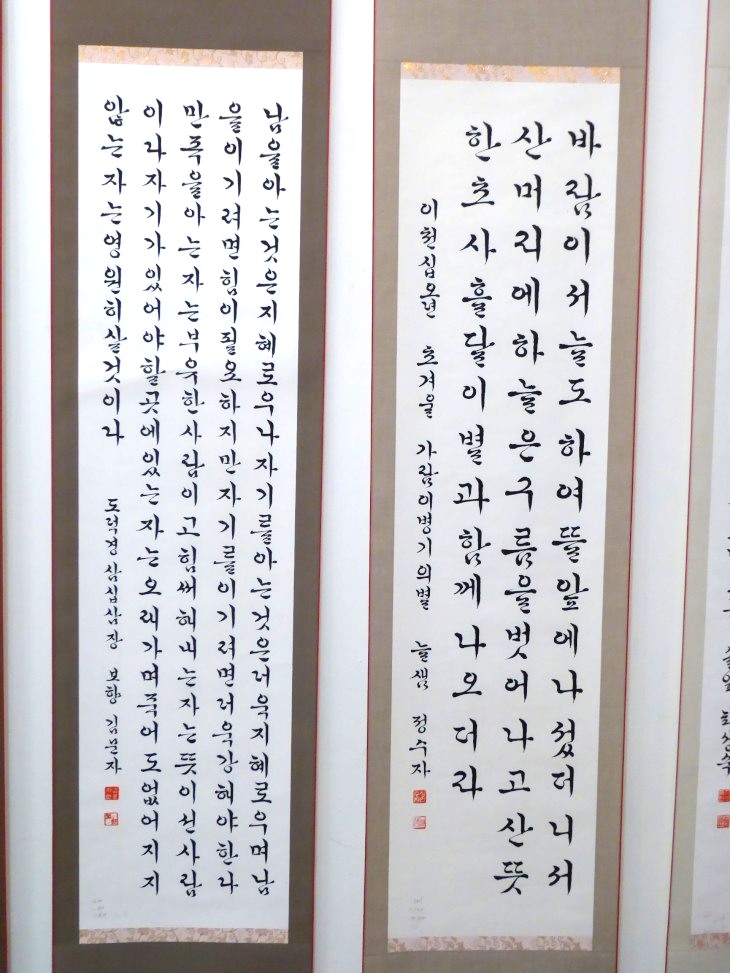 바람이서늘도하여뜰앞에나섰더니서
산머리에하늘은구름을벗어나고산뜻
한초사흘달이별과함께나오더라
이천십오년 초겨울 가람이병기의별 늘샘 정수자
남을아는것은지혜로우나자기를아는것은더욱지혜로우며남
을이기려면힘이필요하지만자기를이기려면더욱강해야한다
만족을아는자는부유한사람이고힘써해내는자는뜻이선사람
이라자기가있어야할곳에있는자는오래가며죽어도없어지지
않는자는영원히살것이라
도덕경삼십삼장 보향 김문자